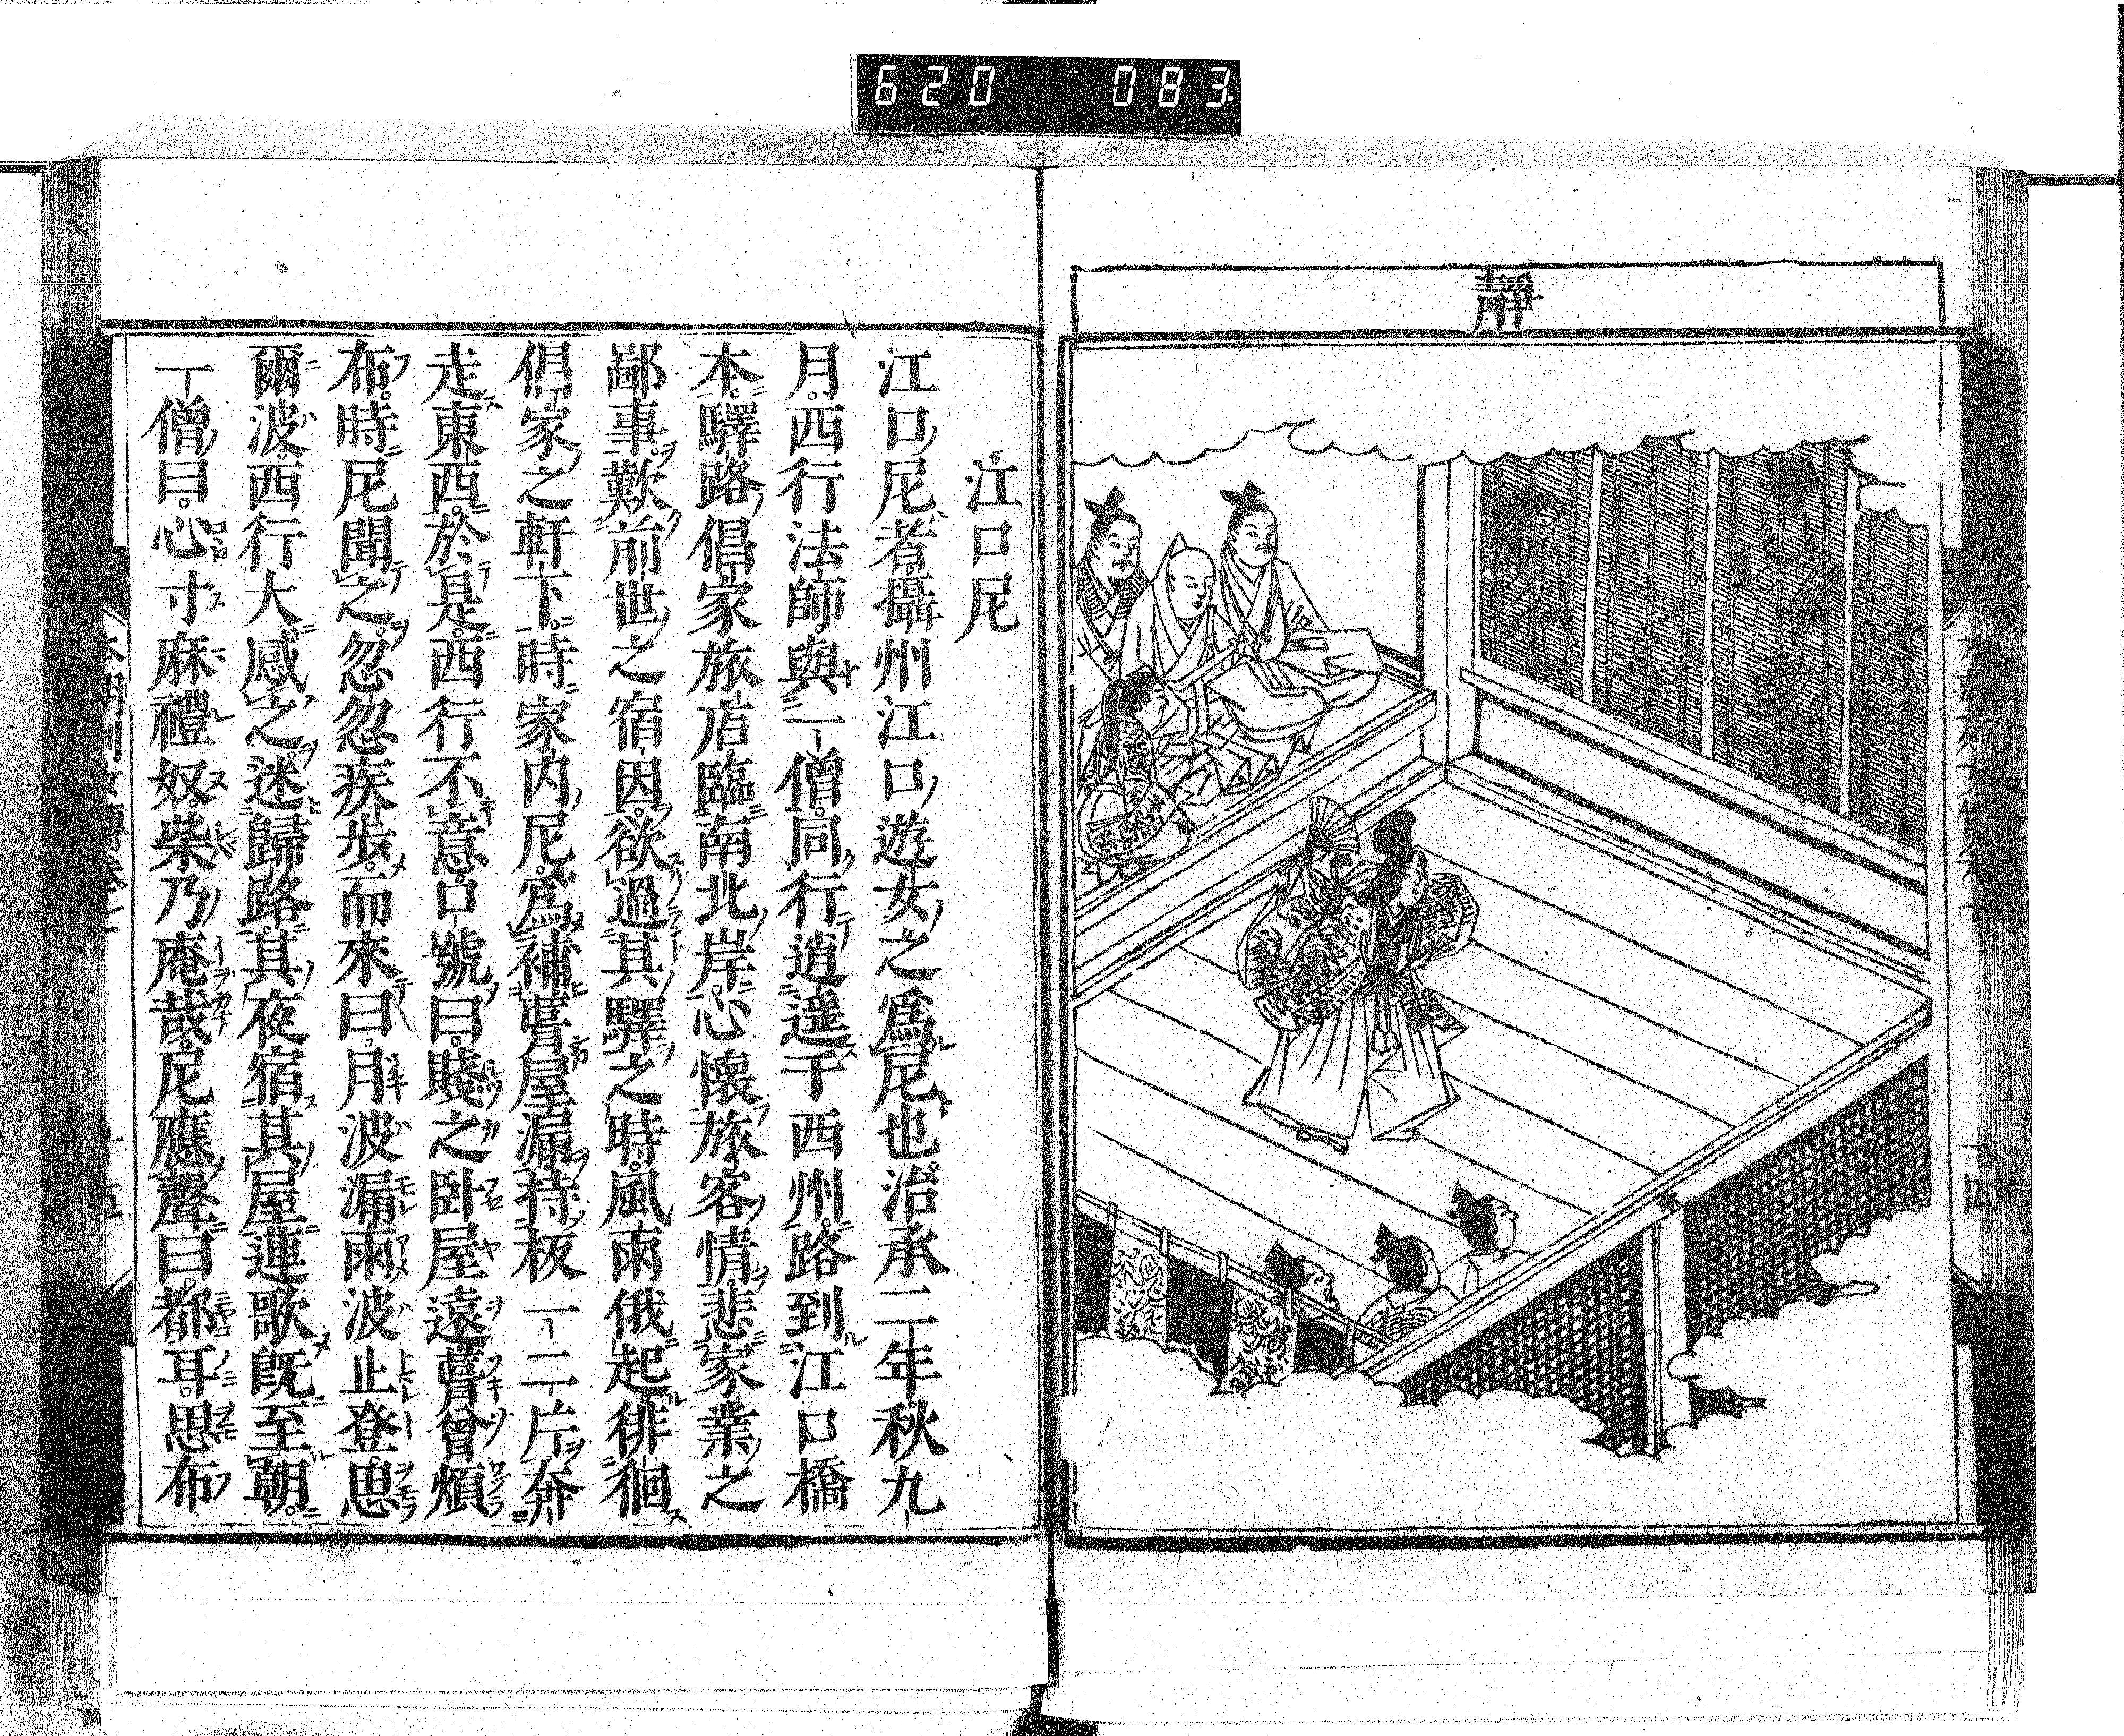 620 083
靜
江口尼
江口尼者攝州江口遊女之爲尼也治承二年秋九
月西行法師與一僧同行逍遥于西州路到江口橋
本驛路倡家旅店臨南北岸心懷旅客情悲家業之
鄙事歎前世之宿因欲過其驛之時風雨俄起徘徊
倡家之軒下時家内尼爲補葺屋漏持板一二片奔
走東西於是西行不意口號曰賤之卧屋遠葺曾煩
布時尼聞之忽忽疾步而來曰月波漏雨波止登思
爾波西行大感之迷歸路其夜宿其屋連歌既至朝
一僧曰心寸麻禮奴柴乃庵哉尼應聲曰都耳思布